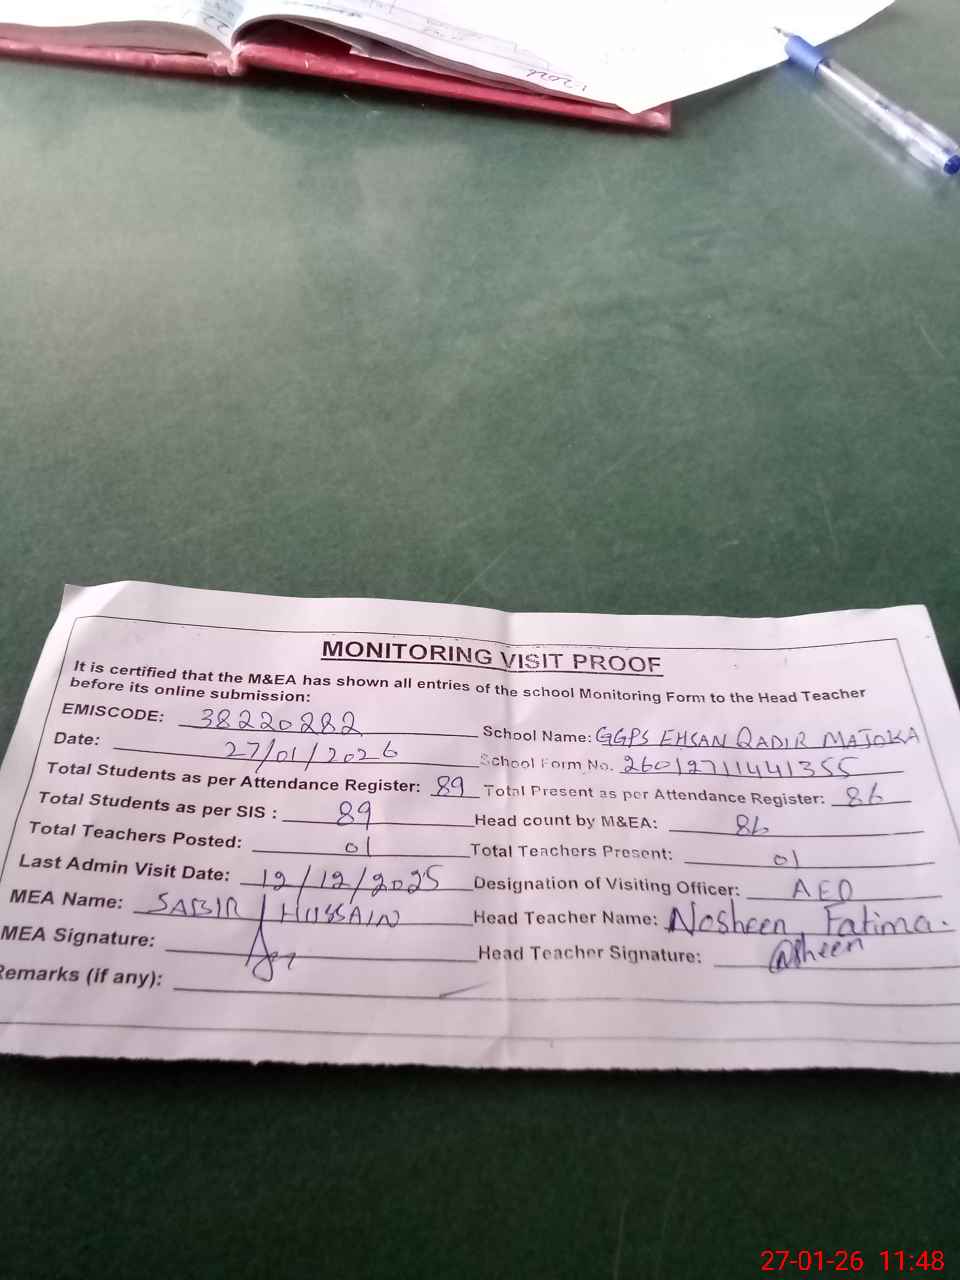 MONITORING VISIT PROOF
It is certified that the M&EA has shown all entries of the school Monitoring Form to the Head Teacher
before its online submission:
EMISCODE: 38220282 School Name: GGPS EHSAN QADIR MAJOKA
Date: 27/01/2026 School Form No. 26012711441355
Total Students as per Attendance Register: 89 Total Present as per Attendance Register: 86
Total Students as per SIS : 89 Head count by M&EA: 86
Total Teachers Posted: 01 Total Teachers Present: 01
Last Admin Visit Date: 12/12/2025 Designation of Visiting Officer: AEO
MEA Name: SABIR HUSSAIN Head Teacher Name: Nosheen Fatima.
MEA Signature: Head Teacher Signature:
Remarks (if any):
27-01-26 11:48